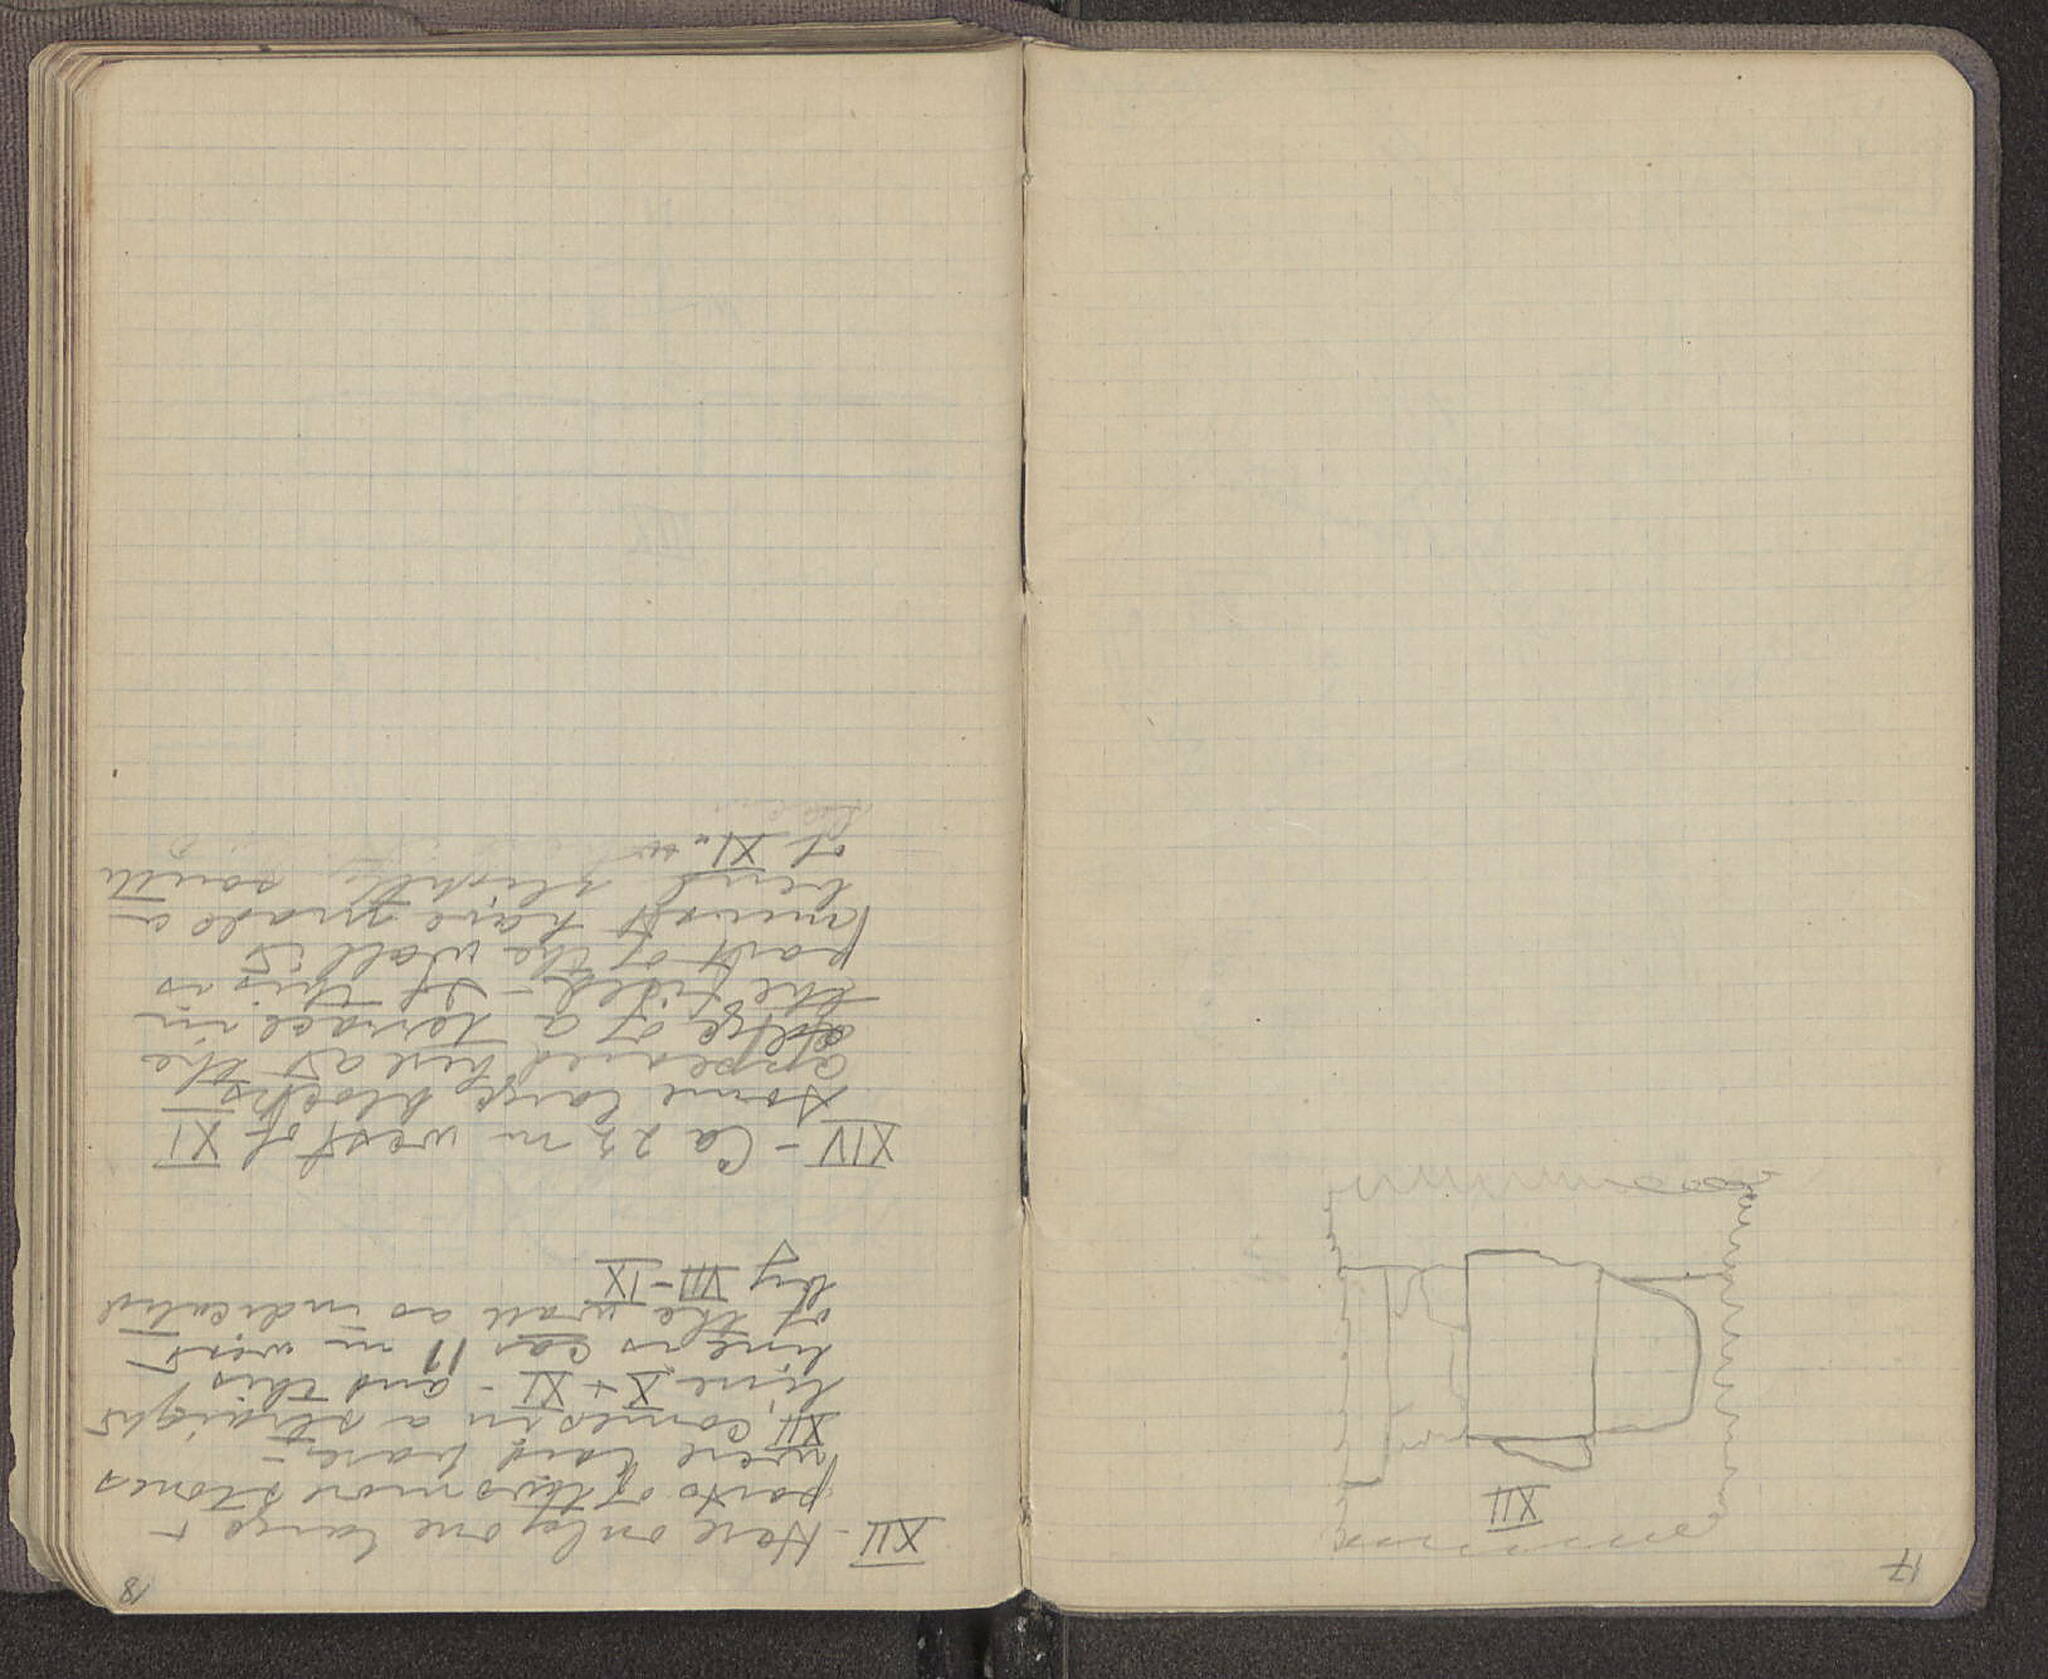 17
XII
18
XII - Here only one large +
parts of two more stones
were laid bare -
XII, comes in a straight
line X + XI - and this
line is ca 11 m west
of the wall as indicated
by VII - IX
XIV - Ca 23 m west of XI
some large blocks
appeared here as the
edge of a terrace in
the field - If this is
part of the wall it
must have made a
bend slightly south
of XI